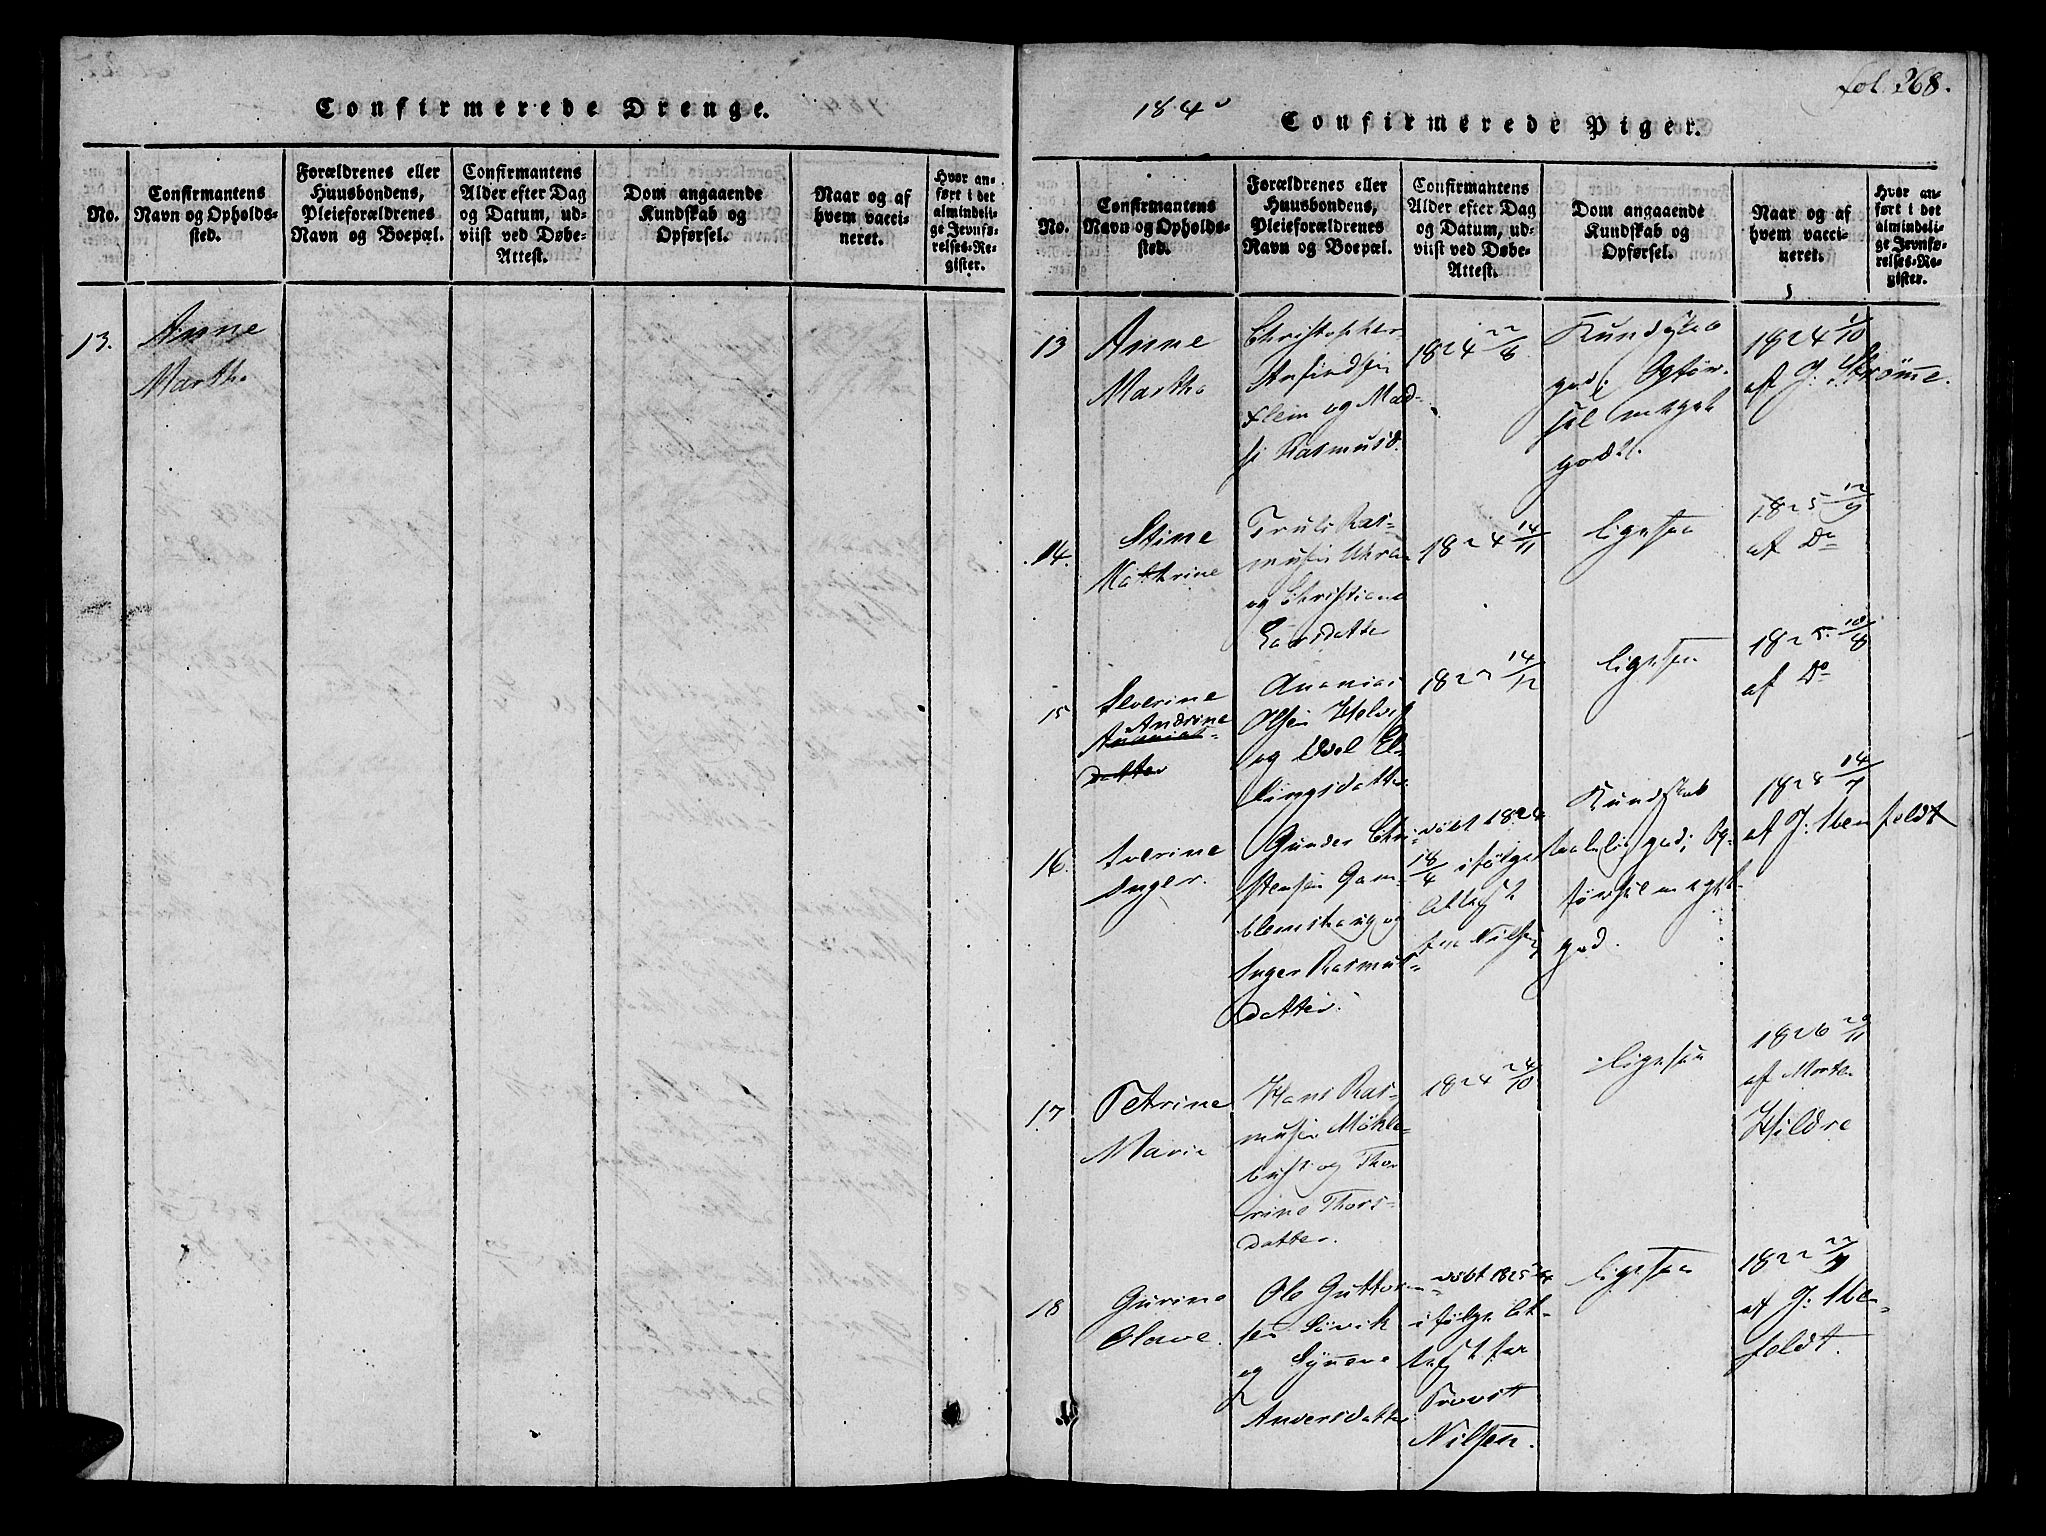 Confirmerede Drenge.
No.
Confirmantens
Navn og Opholds-
sted.
Forældrenes eller
Huusbondens,
Pleieforældrenes
Navn og Boepæl.
Confirmantens
Alder efter Dag
og Datum, ud-
viist ved Døbe-
Attest.
Dom angaaende
Kundskab og
Opførsel.
Naar og af
hvem vacci-
neret.
Hvor an-
ført i det
almindeli-
ge Jevnfø-
relses-Re-
gister.
13.
Anne
Martha
fol. 268.
1840
Confirmerede Piger.
No.
Confirmantens
Navn og Opholds-
sted.
Forældrenes eller
Huusbondens,
Pleieforældrenes
Navn og Boepæl.
Confirmantens
Alder efter Dag
og Datum, ud-
viist ved Døbe-
Attest.
Dom angaaende
Kundskab og
Opførsel.
Naar og af
hvem vacci-
neret.
Hvor an-
ført i det
almindeli-
ge Jevnfø-
relses-Re-
gister.
13
Anne
Martha
Christopher
Flem og Mad-
si Rasmusd.
1824 22/8
Kundskab
god; Opfør-
sel meget
godt.
1824 1/10
af J. Strømme.
14.
Stine
Kathrine
Truls Ras-
musen
og Christiane
Larsdatter
1824 14/11
ligesaa
1825 12/9
af Do
15
Severine
Andrine
Ananias-
datter
Ananias
Olsen
og El-
lingsdatter
14/12
ligesaa
1825 10/8
af Do
16.
Severine
Inger.
Gunder Chri-
stensen Gam-
lemshaug og
Inger Rasmus-
datter.
døbt
18/4 ifølge
Attest
fra Nilsen
Kundskab
taalelig god; Op-
førsel meget
god.
14/7
af J. Ibenfeldt
17
Petrine
Marie
Hans Ras-
musen Mökle-
bust og Thor
rine Thors-
datter.
1824 24/10
ligesaa
1826 20/11
af Morten
Hildre
18
Gurine
Olave.
Ole Guttorm-
sen Søvik
og Synneve
Andersdatter
døbt 1825
ifølge At-
test fra
Provst
Nilsen.
ligesaa
22/9
af J. Iben-
feldt.